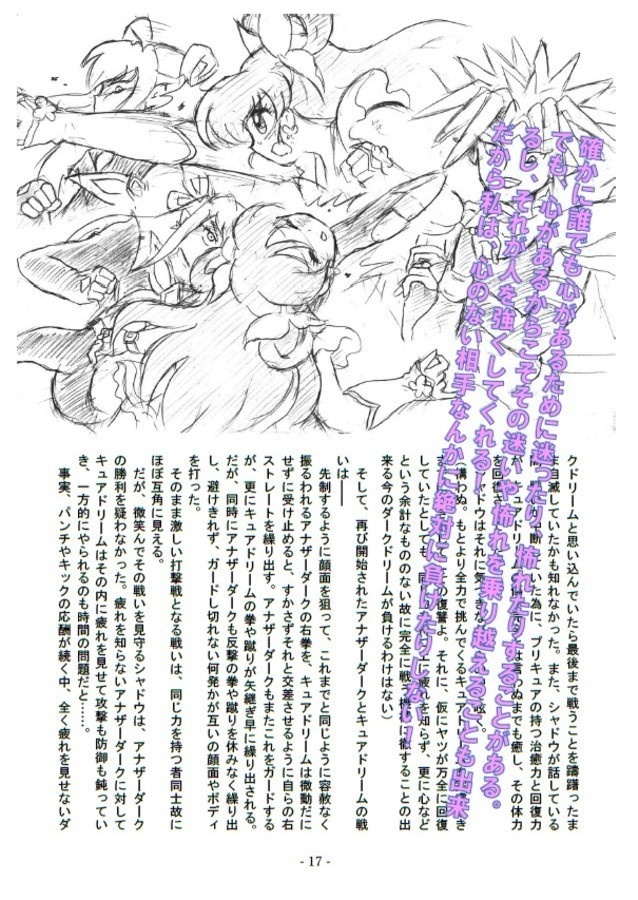 確かに誰でも心があるために迷ったり、怖れたりすることがある。
でも、心があるからこそその迷いや怖れを乗り越えることも出来
るし、それが人を強くしてくれる！
だから私は、心のない相手なんかに絶対に負けたりしない！
クドリームと思い込んでいたら最後まで戦うことを躊躇ったま
ま自滅していたかも知れなかった。また、シャドウが話している
間、戦いが中断していた為に、プリキュアの持つ治癒力と回復力
が、
言わぬまでも癒し、その体力
を回復
シャドウはそれに気づ
構わぬ。もとより全力で挑んでくるキュアドリーム
の復讐よ。それに、仮にヤツが万全に回復
していたとしても、同
疲れを知らず、更に心など
という余計なもののない故に完全に戦う機械に徹することの出
来る今のダークドリームが負けるわけはない）
そして、再び開始されたアナザーダークとキュアドリームの戦
いは――
先制するように顔面を狙って、これまでと同じように容赦なく
振るわれるアナザーダークの右拳を、キュアドリームは微動だに
せずに受け止めると、すかさずそれと交差させるように自らの右
ストレートを繰り出す。アナザーダークもまたこれをガードする
が、更にキュアドリームの拳や蹴りが矢継ぎ早に繰り出される。
だが、同時にアナザーダークも反撃の拳や蹴りを休みなく繰り出
し、避けきれず、ガードし切れない何発かが互いの顔面やボディ
を打った。
そのまま激しい打撃戦となる戦いは、同じ力を持つ者同士故に
ほぼ互角に見える。
だが、微笑んでその戦いを見守るシャドウは、アナザーダーク
の勝利を疑わなかった。疲れを知らないアナザーダークに対して
キュアドリームはその内に疲れを見せて攻撃も防御も鈍ってい
き、一方的にやられるのも時間の問題だと……。
事実、パンチやキックの応酬が続く中、全く疲れを見せないダ
- 17 -